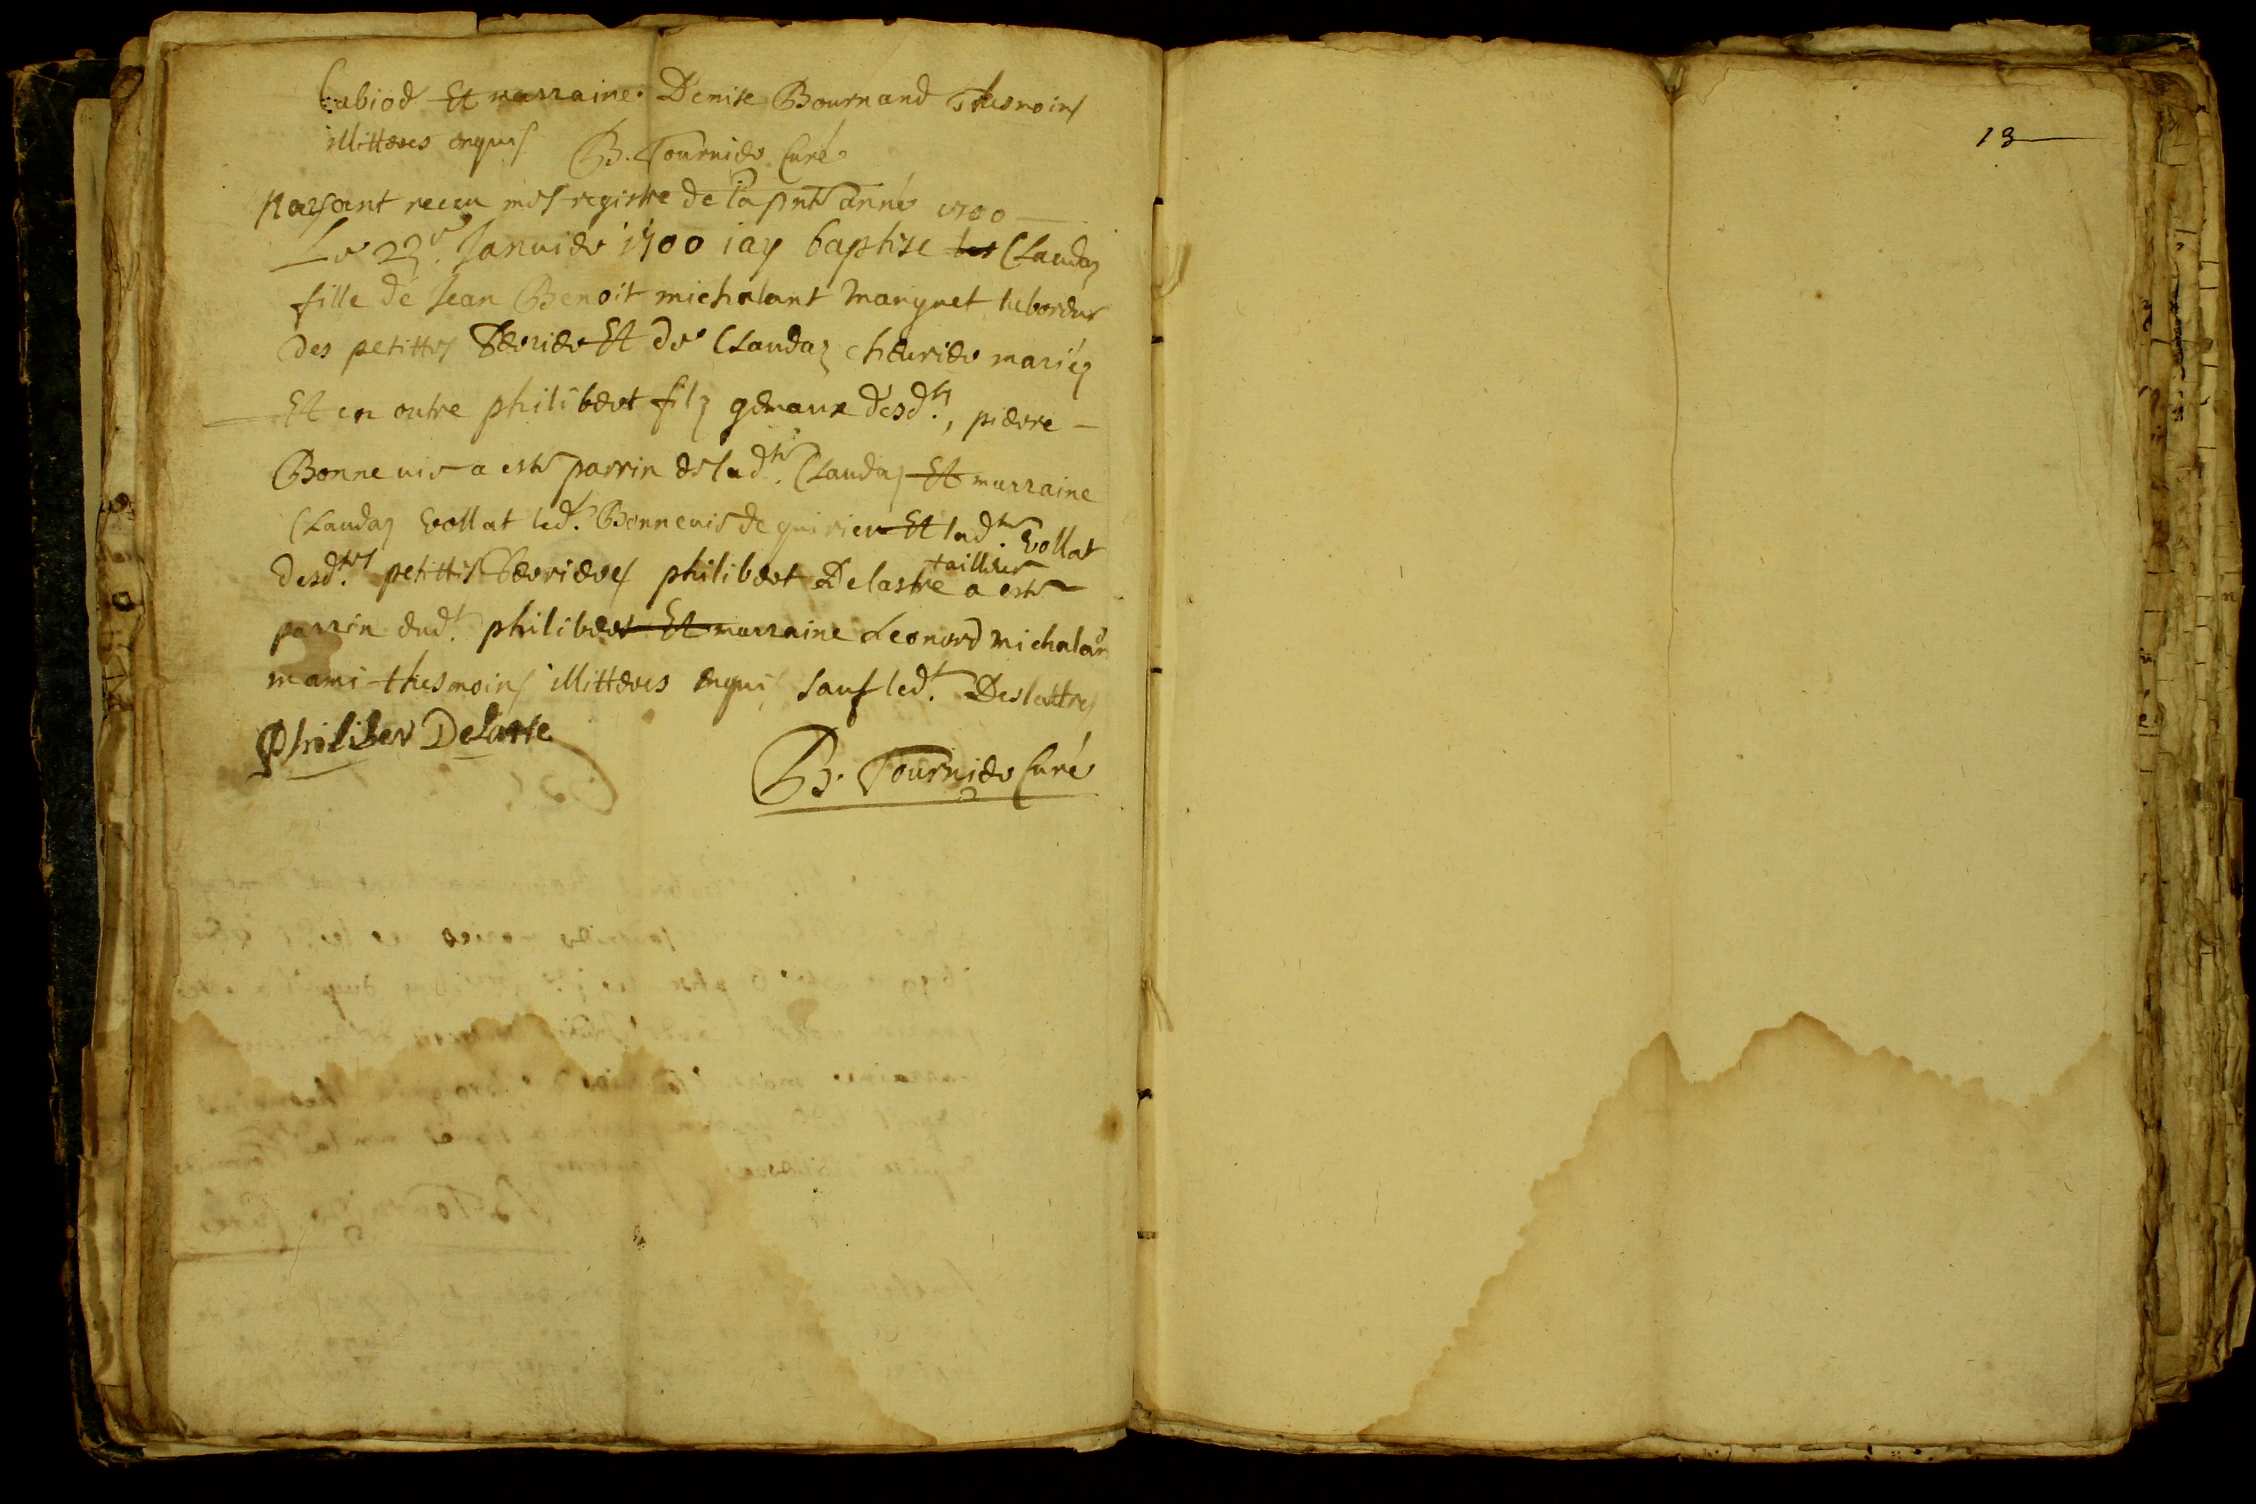 Cabiod Et marraine Denise Bournand Thesmoins
illitteres enquis B. Tournier Curé
Nayant receu mes registre de la pnte année 1700
Le 23e Januier 1700 iay baptise Claudaz
fille de Jean Benoit michalant Manguet laboreur
des petittes Verrier Et de Claudaz cheurier mariéz
Et en outre philibert filz gemaux desdts, pierre
Bonneuie a este parrin de ladte Claudaz Et marraine
Claudaz Vollat ledt Bonneuie de quirieu Et ladte Vollat
desdtes petittes Verrieres philibert Delastre tallieur a este
parrin dudt philibert Et marraine Leonord Michaland
mami thesmoins illitteres enquis sauf ledt Deslattres
Philiber Delattre
B. Tournier Curé
13